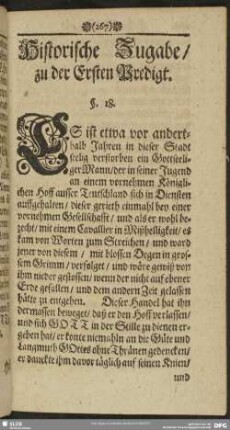 (267)
Historische Zugabe/
zu der Ersten Predigt.
§. 18.
ES ist etwa vor andert-
halb Jahren in dieser Stadt
selig verstorben ein Gottseeli-
ger Mann/ der in seiner Jugend
an einem vornehmen Königli-
chen Hoff ausser Teutschland sich in Diensten
auffgehalten/ dieser gerieth einmahl bey einer
vornehmen Gesellschafft/ und als er wohl be-
zecht/ mit einem Cavallier in Mißhelligkeit/ es
kam von Worten zum Streichen/ und ward
jener von diesem/ mit blossen Degen in gros-
sem Grimm/ verfolget/ und wäre gewiß von
ihm nieder gestossen/ wenn der nicht auf ebener
Erde gefallen/ und dem andern Zeit gelassen
hätte zu entgehen. Dieser Handel hat ihn
dermassen beweget/ daß er den Hoff verlassen/
und sich GOTT in der Stille zu dienen er-
geben hat/ er konte niemahln an die Güte und
Langmuth GOttes ohne Thränen gedencken/
er danckte ihm davor täglich auf seinen Knien/
und